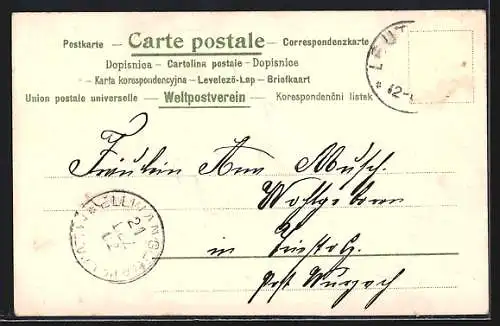 Postkarte – Carte postale – Correspondenzkarte
Dopisnica – Cartolina postale – Dopisnice
Karta korespondencyjna – Levelező-Lap – Briefkaart
Union postale universelle – Weltpostverein – Korespondenční listek
LEUT
Fräulein Ann Musch.
Wohlgeboren
in
Post Wurzach
ELLWANGEN
21